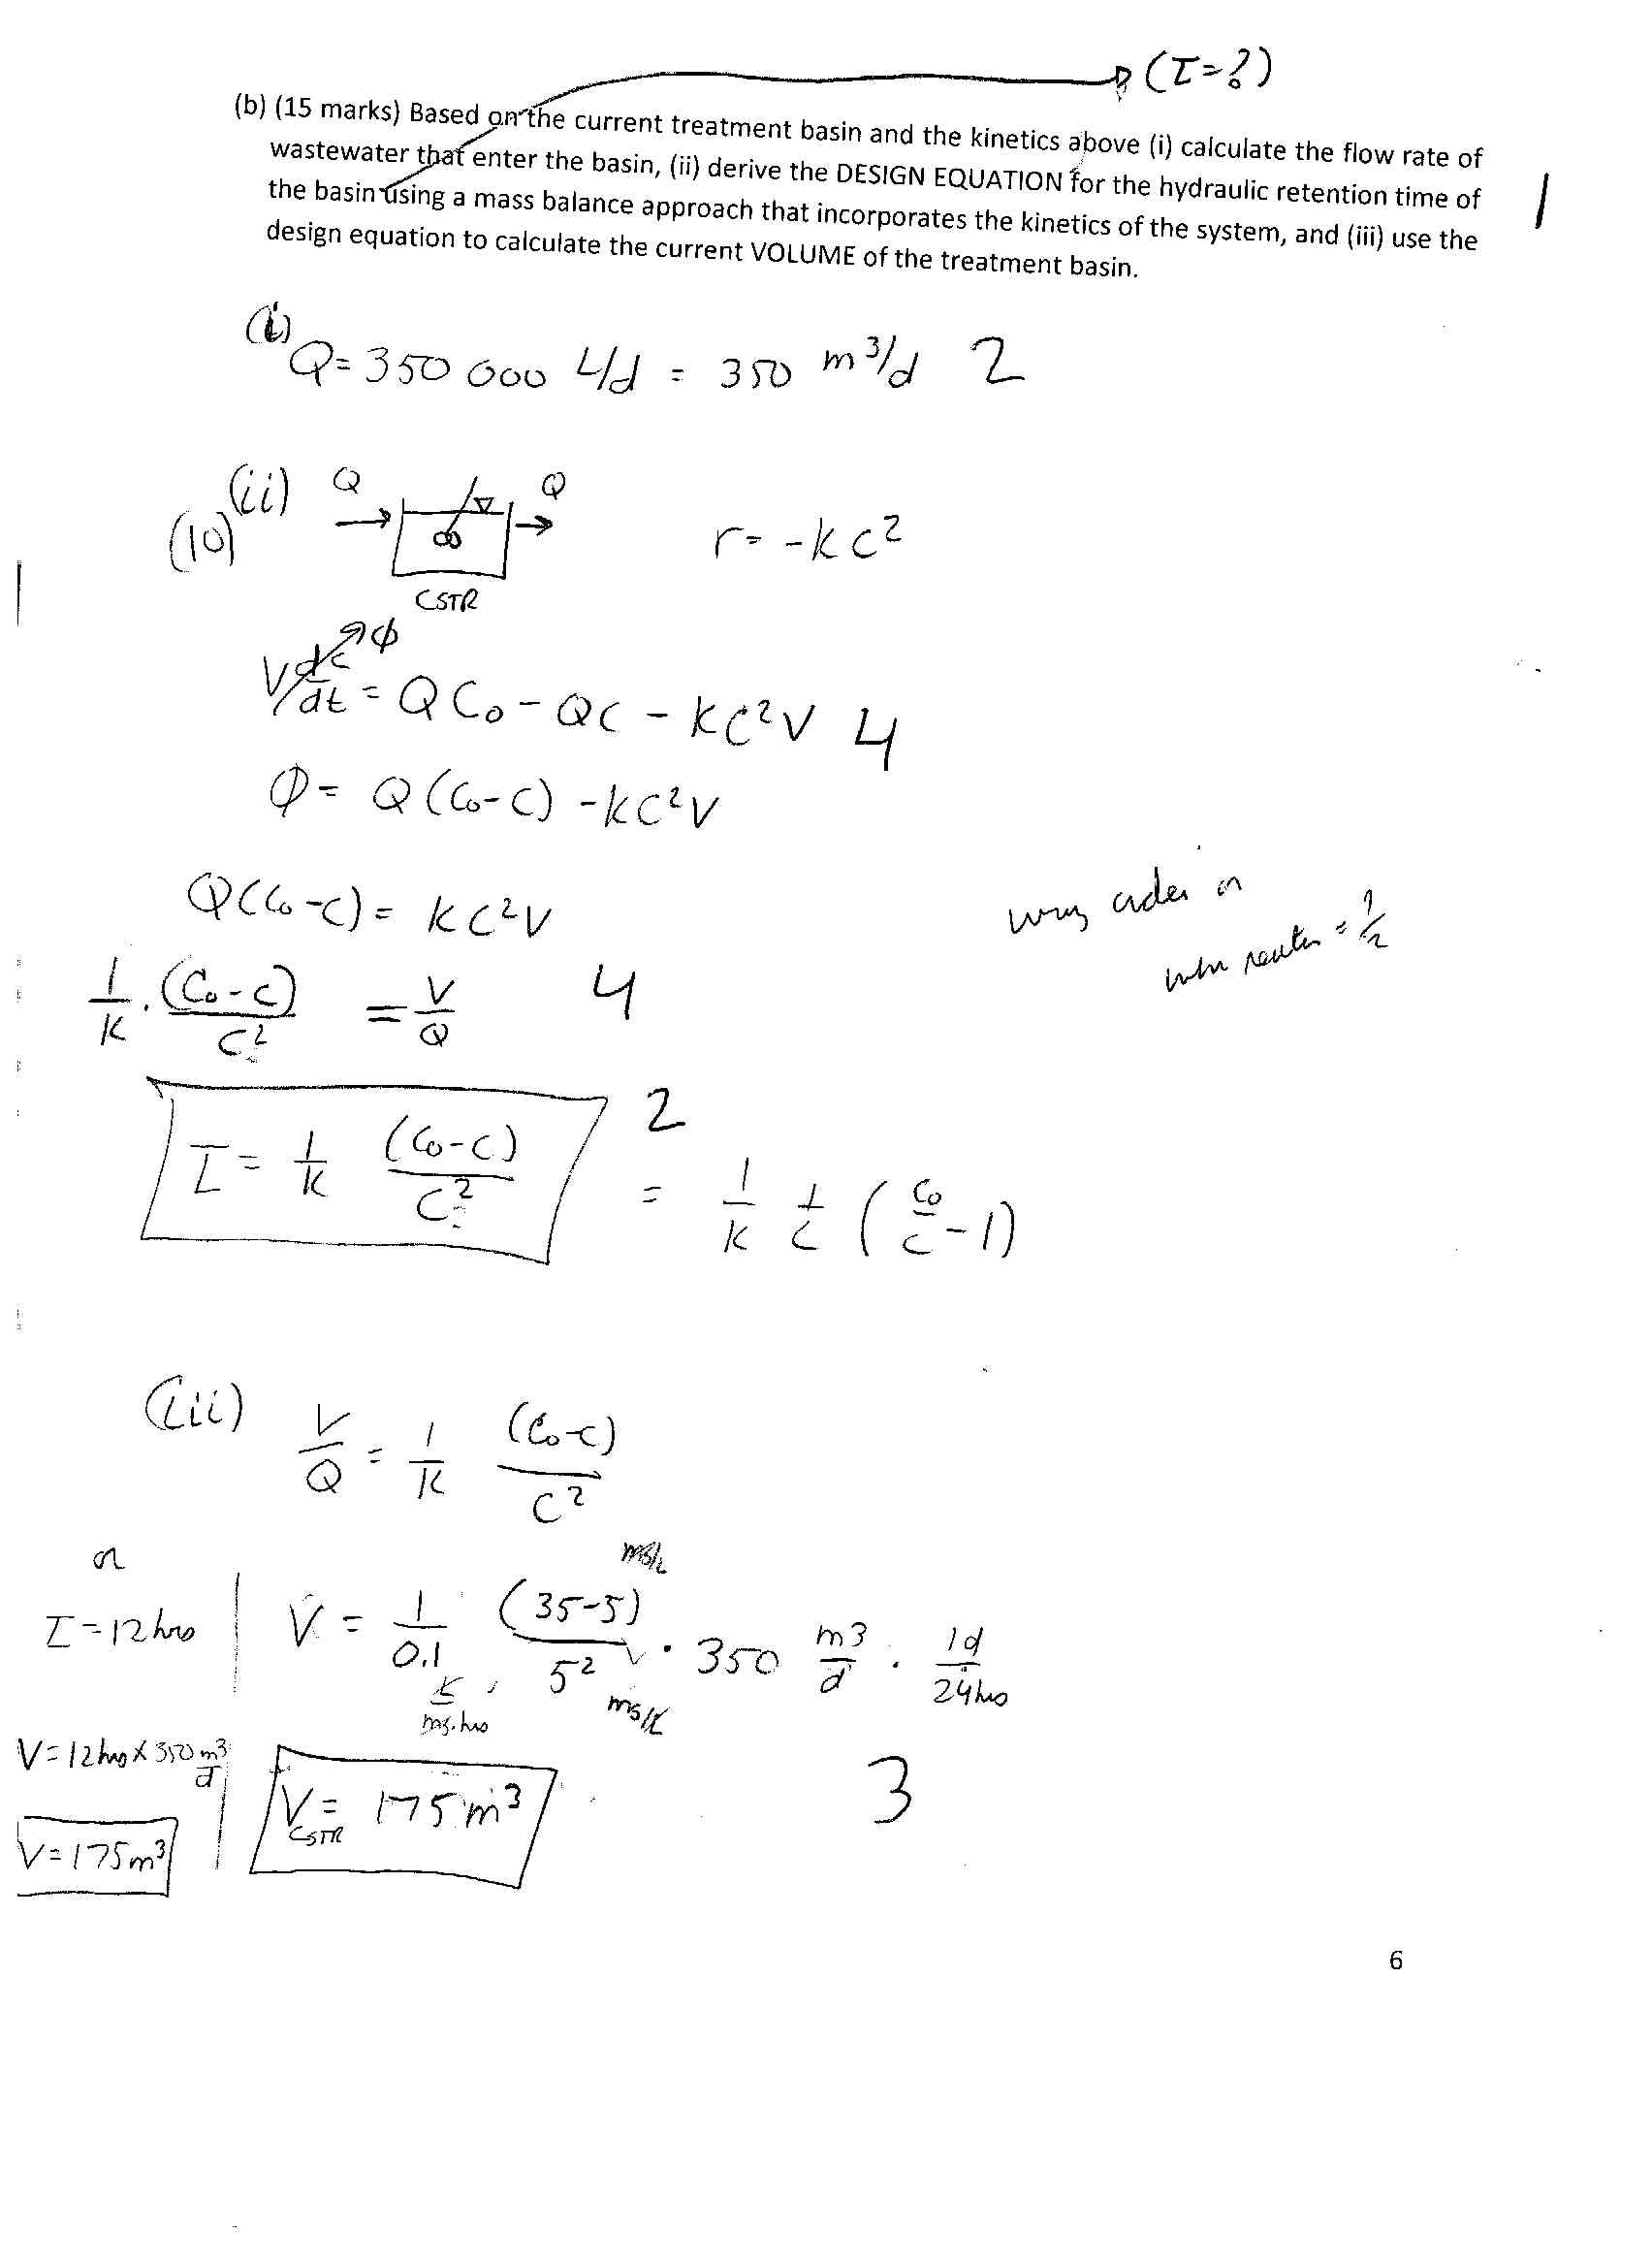 (τ=?)
(b) (15 marks) Based on the current treatment basin and the kinetics above (i) calculate the flow rate of
wastewater that enter the basin, (ii) derive the DESIGN EQUATION for the hydraulic retention time of
the basin using a mass balance approach that incorporates the kinetics of the system, and (iii) use the
design equation to calculate the current VOLUME of the treatment basin.
(i)
Q = 350 000 L/d = 350 m³/d 2
(ii) Q Q
(10) r = -kC²
CSTR
V dc/dt = QC₀ - QC - kC²V 4
φ
φ = Q(C₀-C) - kC²V
Q(C₀-C) = kC²V
wrong order or
= 1/2
1/k . (C₀-C)/C² = V/Q 4
τ = 1/k (C₀-C)/C² 2
= 1/k 1/C (C₀/C - 1)
(iii) V/Q = 1/k (C₀-C)/C²
or
τ = 12 hrs
V = 1/0.1 (35-5)/5² . 350 m³/d . 1d/24hrs
mg/L
L/mg.hrs
mg/L
V = 12 hrs x 350 m³/d
V = 175 m³
V = 175 m³
CSTR
3
6